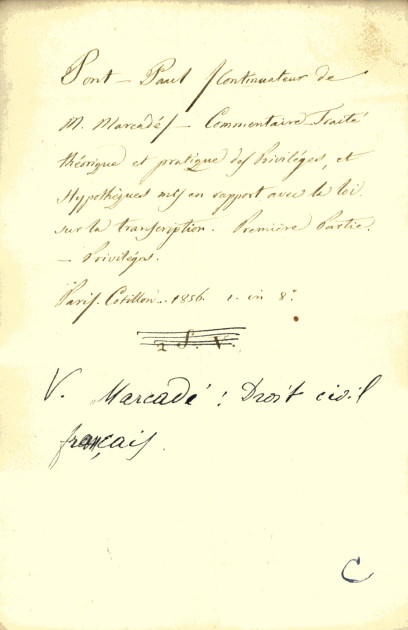 Pont – Paul (Continuateur de
M. Marcadé) – Commentaire Traité
théorique et pratique des Priviléges, et
Hypothèques mis en rapport avec la loi
sur la transcription. Première Partie.
– Priviléges.
Paris. Cotillon. 1856. 1. in 8.°
2 S. V.
V. Marcadé : Droit civil
français.
C